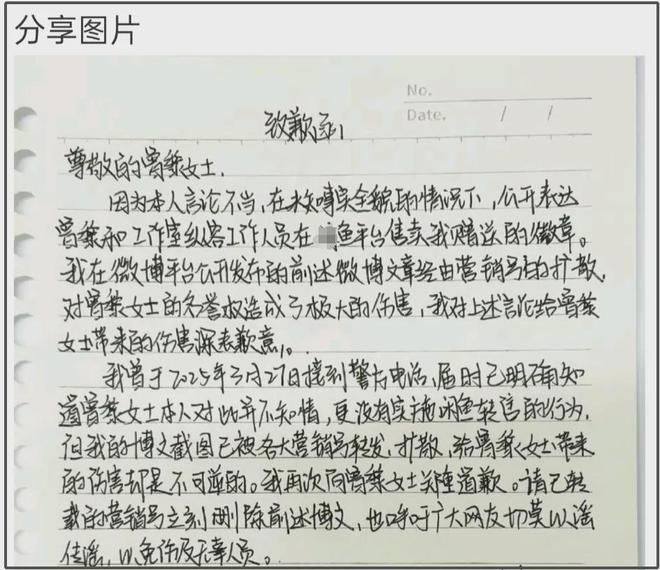 分享图片
No.
Date. / /
致歉函
尊敬的曾黎女士,
因为本人言论不当,在未知全貌的情况下,公开表达
曾黎和工作室纵容工作人员在 鱼平台售卖我赠送的徽章。
我在微博平台公开发布的前述微博文章经由营销号的扩散,
对曾黎女士的名誉权造成了极大的伤害,我对上述言论给曾黎
女士带来的伤害深表歉意。
我曾于2025年3月27日接到警方电话,届时已明确知
道曾黎女士本人对此并不知情,更没有实施闲鱼转售的行为,
但我的博文截图已被各大营销号转发、扩散,给曾黎女士带来
的伤害却是不可逆的。我再次向曾黎女士郑重道歉。请已转
载的营销号立刻删除前述博文,也呼吁广大网友切莫以谣
传谣,以免伤及无辜人员。